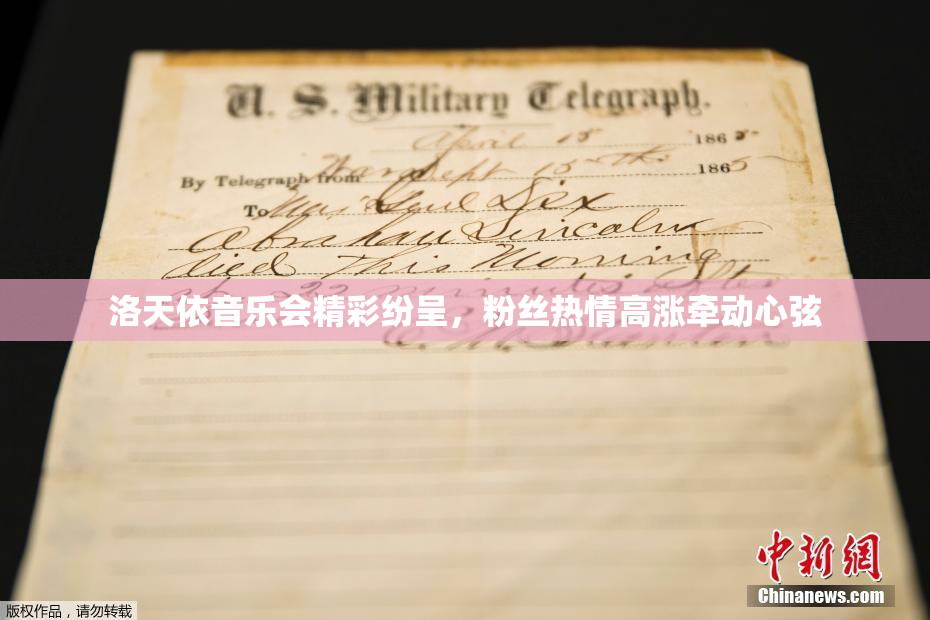 U. S. Military Telegraph.
April 15 1865
By Telegraph from War Dept 15th 1865
To Maj Genl Dix
Abraham Lincoln
died This Morning
at 22 minutes after
洛天依音乐会精彩纷呈，粉丝热情高涨牵动心弦
E. M. Stanton
中新网
Chinanews.com
版权作品，请勿转载